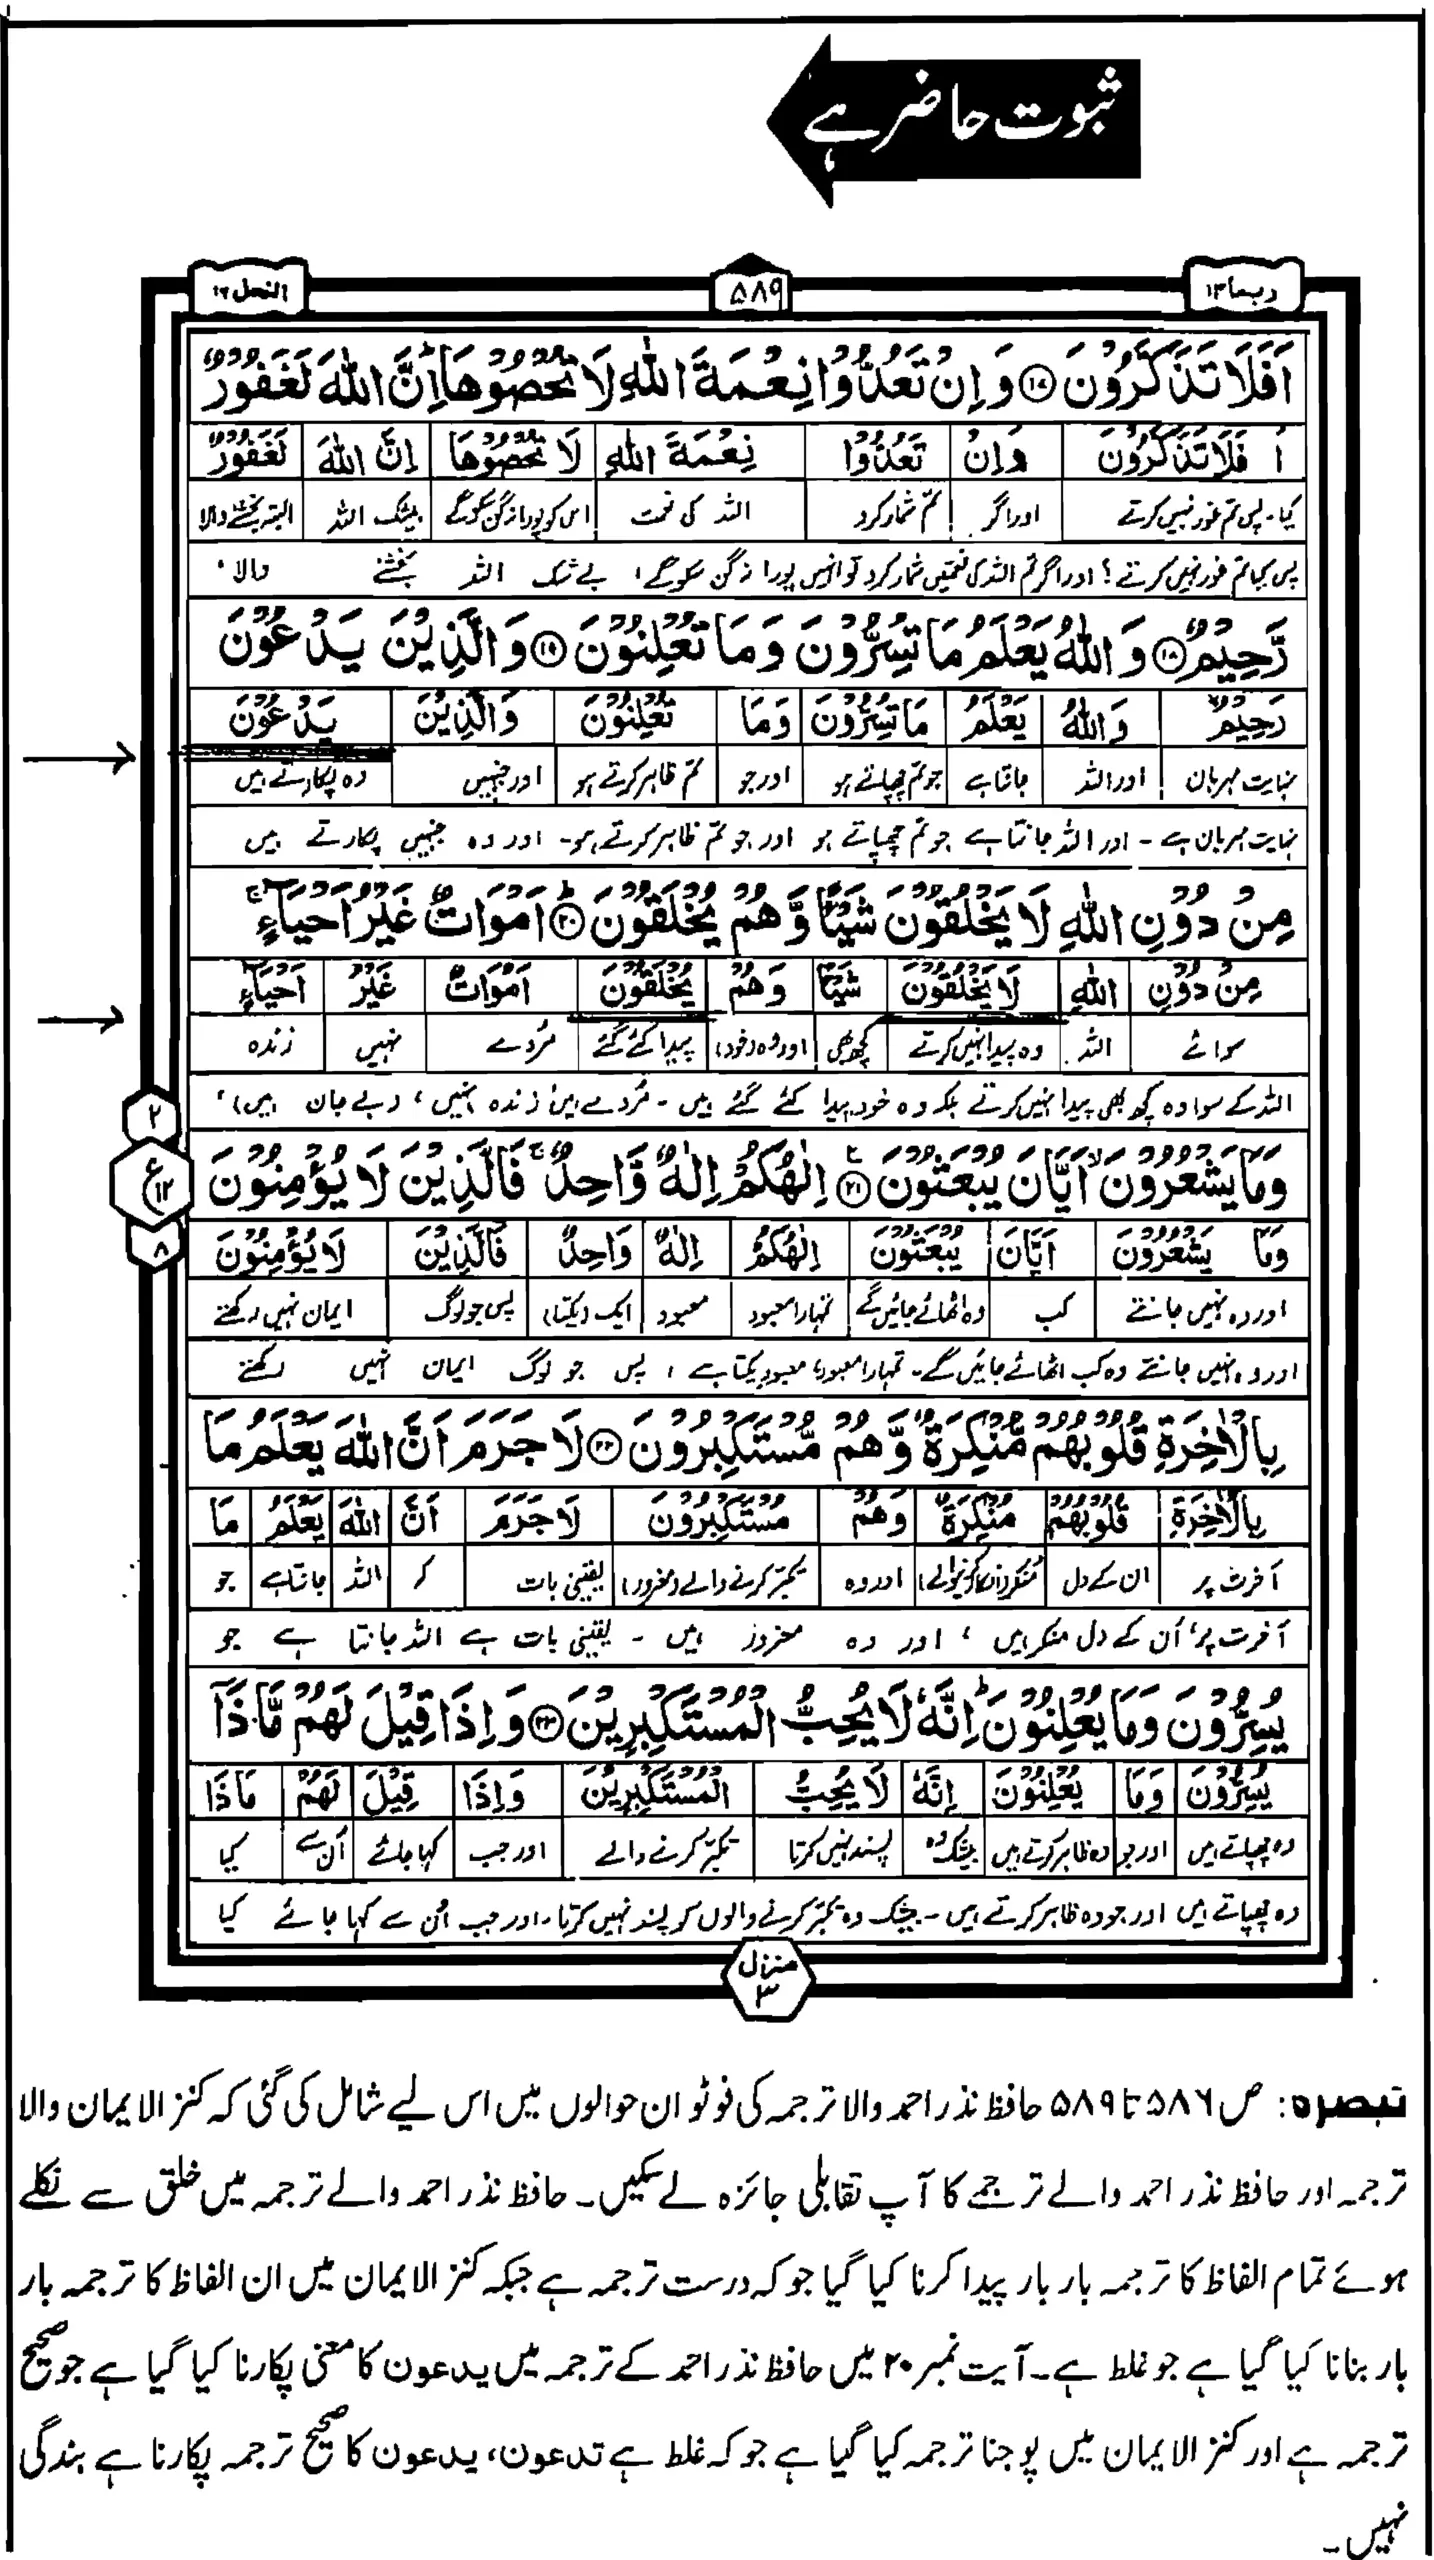 ثبوت حاضر ہے
ربما ۱۴
۵۸۹
النحل ۱۶
اَفَلَا تَذَكَّرُوْنَ ۝۱۷ وَاِنْ تَعُدُّوْا نِعْمَةَ اللّٰهِ لَا تُحْصُوْهَا ؕ اِنَّ اللّٰهَ لَغَفُوْرٌ
اَ فَلَا تَذَكَّرُوْنَ وَاِنْ تَعُدُّوْا نِعْمَةَ اللّٰهِ لَا تُحْصُوْهَا اِنَّ اللّٰهَ لَغَفُوْرٌ
کیا۔ پس تم غور نہیں کرتے اور اگر تم شمار کرو اللہ کی نعمت اس کو پورا نہ گن سکوگے بیشک اللہ البتہ بخشنے والا
پس کیا تم غور نہیں کرتے؟ اور اگر تم اللہ کی نعمتیں شمار کرو تو انہیں پورا نہ گن سکوگے، بے شک اللہ بخشنے والا،
رَّحِيْمٌ ۝۱۸ وَاللّٰهُ يَعْلَمُ مَا تُسِرُّوْنَ وَمَا تُعْلِنُوْنَ ۝۱۹ وَالَّذِيْنَ يَدْعُوْنَ
رَحِيْمٌ وَاللّٰهُ يَعْلَمُ مَا تُسِرُّوْنَ وَمَا تُعْلِنُوْنَ وَالَّذِيْنَ يَدْعُوْنَ
نہایت مہربان اور اللہ جانتا ہے جو تم چھپاتے ہو اور جو تم ظاہر کرتے ہو اور جنہیں وہ پکارتے ہیں
نہایت مہربان ہے۔ اور اللہ جانتا ہے جو تم چھپاتے ہو اور جو تم ظاہر کرتے ہو۔ اور وہ جنہیں پکارتے ہیں
مِنْ دُوْنِ اللّٰهِ لَا يَخْلُقُوْنَ شَيْـًٔا وَّهُمْ يُخْلَقُوْنَ ؕ۝۲۰ اَمْوَاتٌ غَيْرُ اَحْيَآءٍ ۚ
مِنْ دُوْنِ اللّٰهِ لَا يَخْلُقُوْنَ شَيْـًٔا وَهُمْ يُخْلَقُوْنَ اَمْوَاتٌ غَيْرُ اَحْيَآءٍ
سوائے اللہ وہ پیدا نہیں کرتے کچھ بھی اور وہ (خود) پیدا کئے گئے مُردے نہیں زندہ
اللہ کے سوا وہ کچھ بھی پیدا نہیں کرتے بلکہ وہ خود پیدا کئے گئے ہیں۔ مُردے ہیں، زندہ نہیں، (بے جان ہیں)،
۲
ع ۱۲
۸
وَمَا يَشْعُرُوْنَ ۙ اَيَّانَ يُبْعَثُوْنَ ۝۲۱ اِلٰهُكُمْ اِلٰهٌ وَّاحِدٌ ۚ فَالَّذِيْنَ لَا يُؤْمِنُوْنَ
وَمَا يَشْعُرُوْنَ اَيَّانَ يُبْعَثُوْنَ اِلٰهُكُمْ اِلٰهٌ وَاحِدٌ فَالَّذِيْنَ لَا يُؤْمِنُوْنَ
اور وہ نہیں جانتے کب وہ اٹھائے جائیں گے تمہارا معبود معبود ایک (یکتا) پس جو لوگ ایمان نہیں رکھتے
اور وہ نہیں جانتے وہ کب اٹھائے جائیں گے۔ تمہارا معبود، معبود یکتا ہے، پس جو لوگ ایمان نہیں رکھتے
بِالْاٰخِرَةِ قُلُوْبُهُمْ مُّنْكِرَةٌ وَّهُمْ مُّسْتَكْبِرُوْنَ ۝۲۲ لَا جَرَمَ اَنَّ اللّٰهَ يَعْلَمُ مَا
بِالْاٰخِرَةِ قُلُوْبُهُمْ مُنْكِرَةٌ وَهُمْ مُسْتَكْبِرُوْنَ لَا جَرَمَ اَنَّ اللّٰهَ يَعْلَمُ مَا
آخرت پر ان کے دل منکر (انکار کرنیوالے) اور وہ تکبر کرنے والے (مغرور) یقینی بات کہ اللہ جانتا ہے جو
آخرت پر، اُن کے دل منکر ہیں، اور وہ مغرور ہیں۔ یقینی بات ہے اللہ جانتا ہے جو
يُسِرُّوْنَ وَمَا يُعْلِنُوْنَ ؕ اِنَّهٗ لَا يُحِبُّ الْمُسْتَكْبِرِيْنَ ۝۲۳ وَاِذَا قِيْلَ لَهُمْ مَّاذَآ
يُسِرُّوْنَ وَمَا يُعْلِنُوْنَ اِنَّهٗ لَا يُحِبُّ الْمُسْتَكْبِرِيْنَ وَاِذَا قِيْلَ لَهُمْ مَاذَا
وہ چھپاتے ہیں اور جو وہ ظاہر کرتے ہیں بیشک وہ پسند نہیں کرتا تکبر کرنے والے اور جب کہا جائے اُن سے کیا
وہ چھپاتے ہیں اور جو وہ ظاہر کرتے ہیں۔ بیشک وہ تکبر کرنے والوں کو پسند نہیں کرتا۔ اور جب اُن سے کہا جائے کیا
منزل ۳
تبصرہ: ص ۵۸۶ تا ۵۸۹ حافظ نذر احمد والا ترجمہ کی فوٹو ان حوالوں میں اس لیے شامل کی گئی کہ کنز الایمان والا
ترجمہ اور حافظ نذر احمد والے ترجمے کا آپ تقابلی جائزہ لے سکیں۔ حافظ نذر احمد والے ترجمہ میں خلق سے نکلے
ہوئے تمام الفاظ کا ترجمہ بار بار پیدا کرنا کیا گیا جو کہ درست ترجمہ ہے جبکہ کنز الایمان میں ان الفاظ کا ترجمہ بار
بار بنانا کیا گیا ہے جو غلط ہے۔ آیت نمبر ۲۰ میں حافظ نذر احمد کے ترجمہ میں یدعون کا معنی پکارنا کیا گیا ہے جو صحیح
ترجمہ ہے اور کنز الایمان میں پوجنا ترجمہ کیا گیا ہے جو کہ غلط ہے تدعون، یدعون کا صحیح ترجمہ پکارنا ہے بندگی
نہیں۔